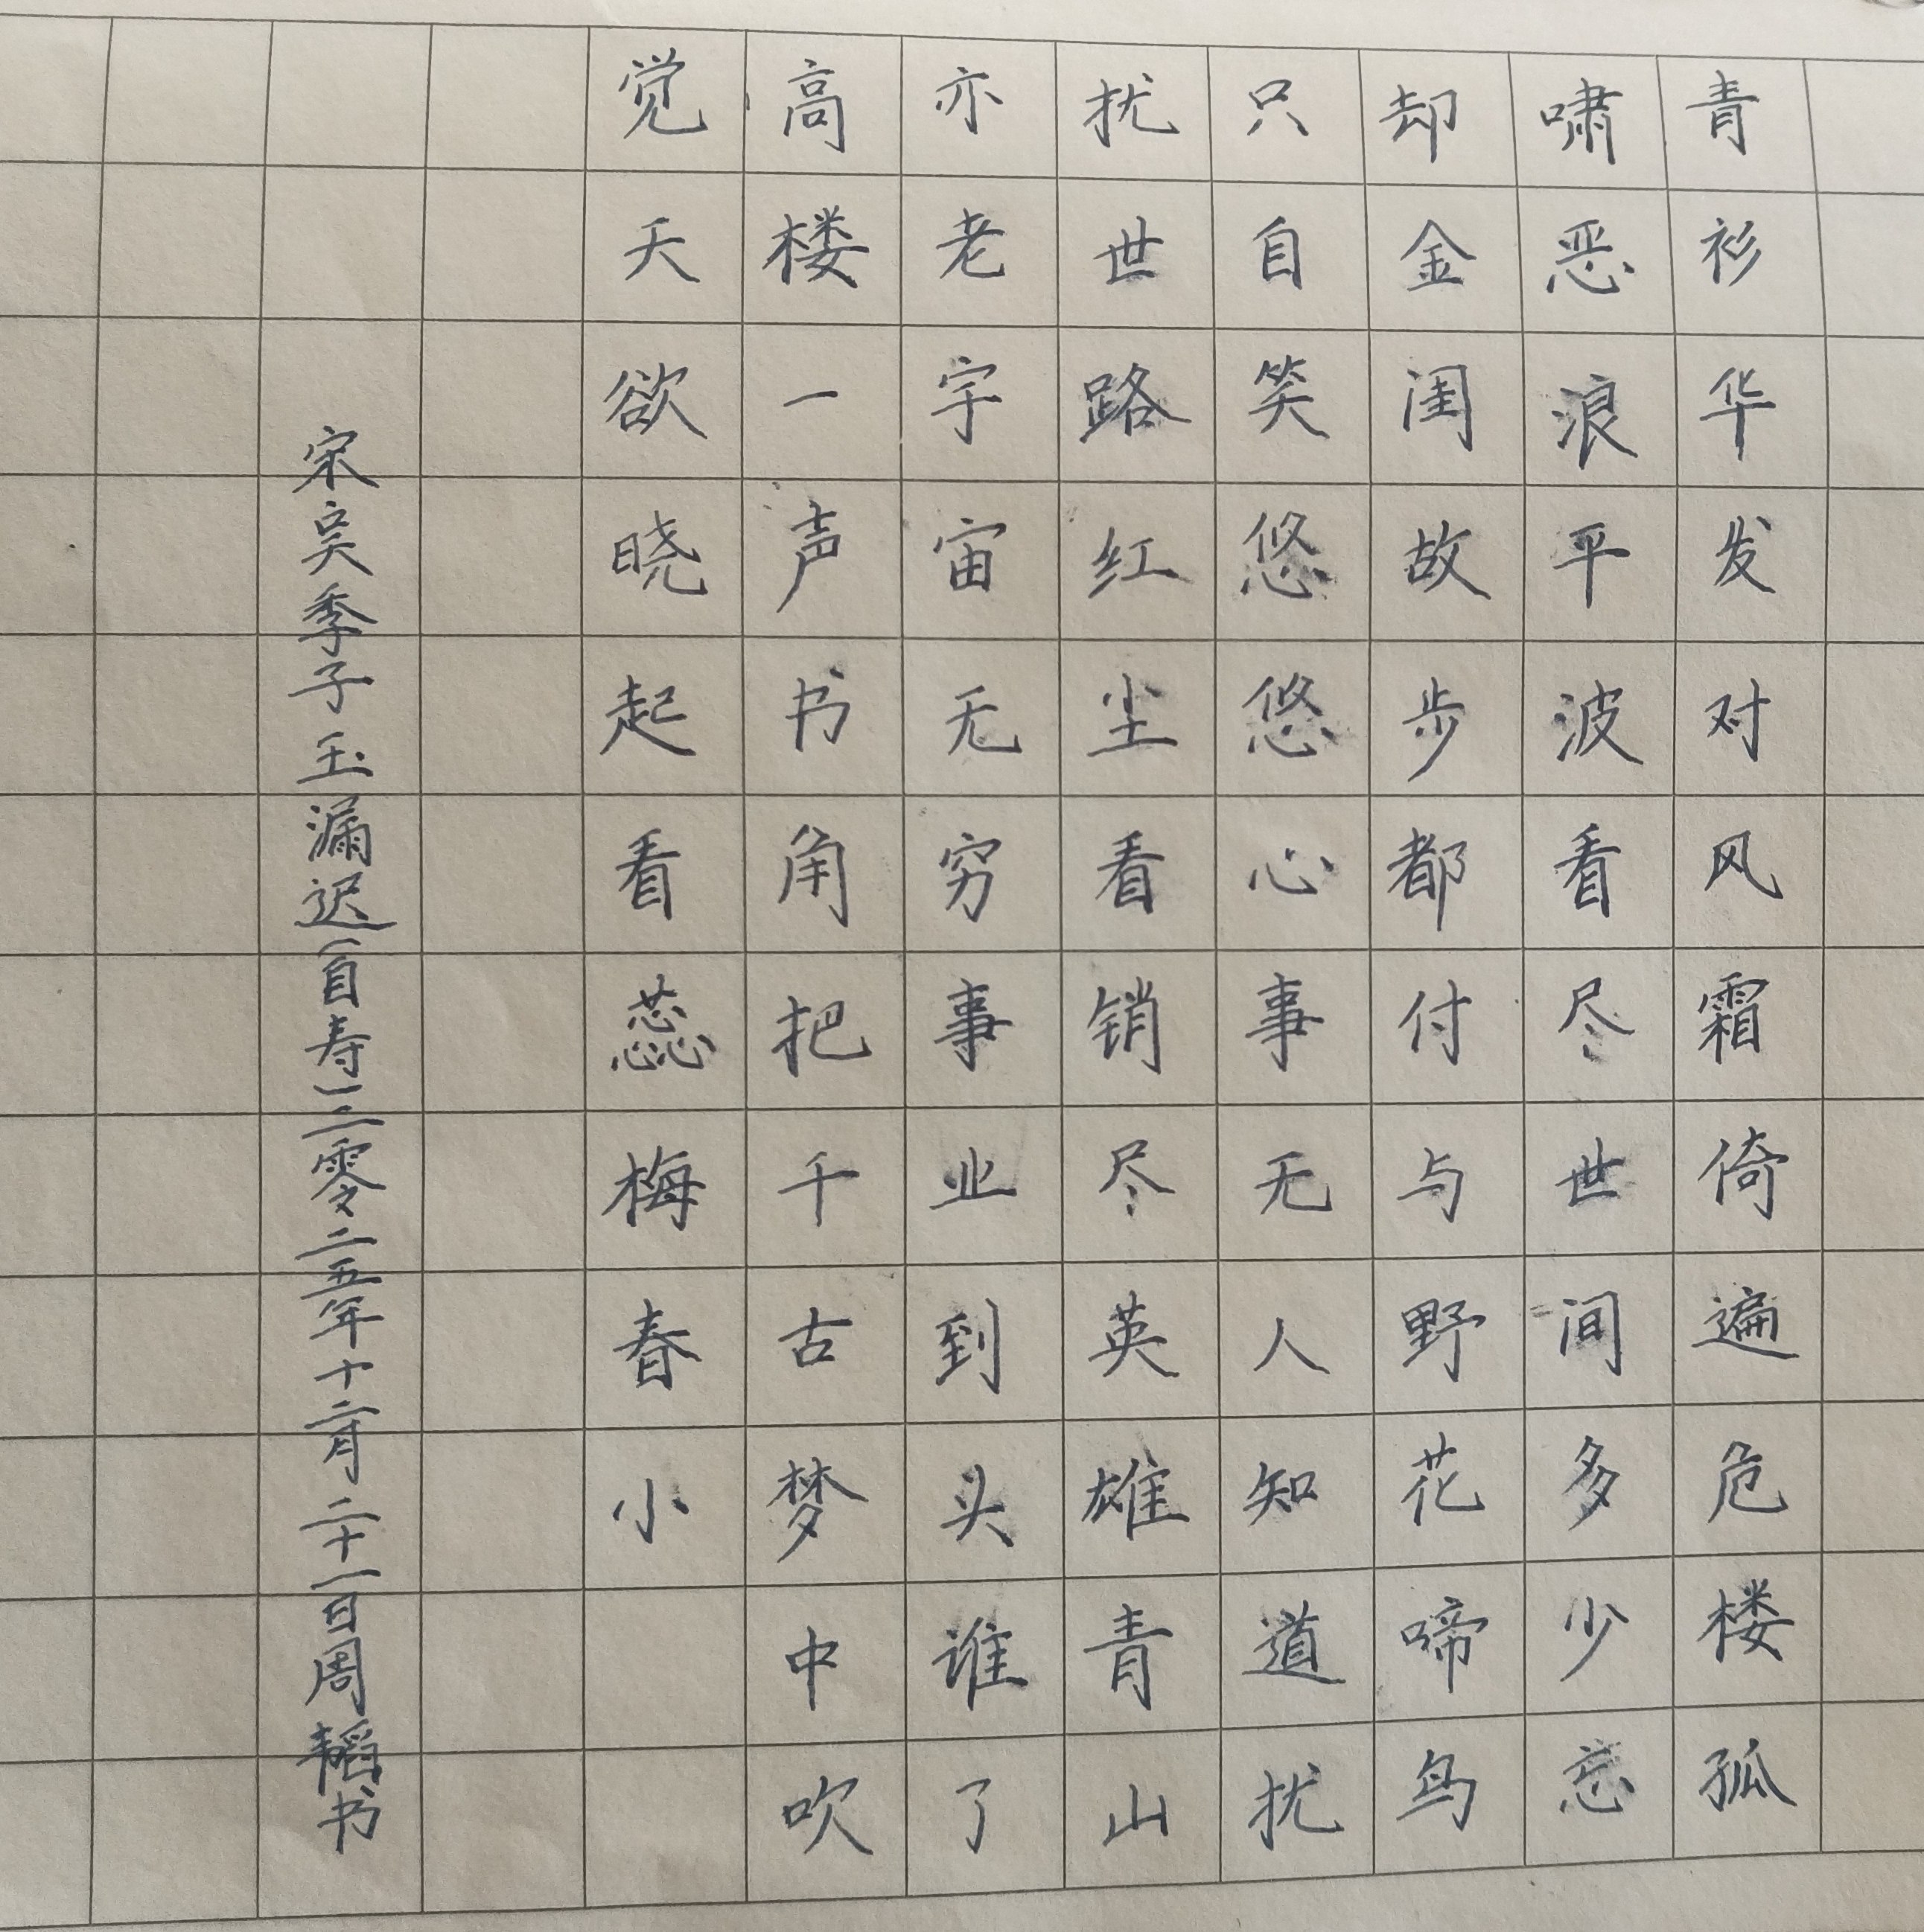 青衫华发对风霜倚遍危楼孤
啸恶浪平波看尽世间多少忘
却金闺故步都付与野花啼鸟
只自笑悠悠心事无人知道扰
扰世路红尘看销尽英雄青山
亦老宇宙无穷事业到头谁了
高楼一声书角把千古梦中吹
觉天欲晓起看蕊梅春小
宋吴季子玉漏迟(自寿)二零二五年十二月二十一日周韬书